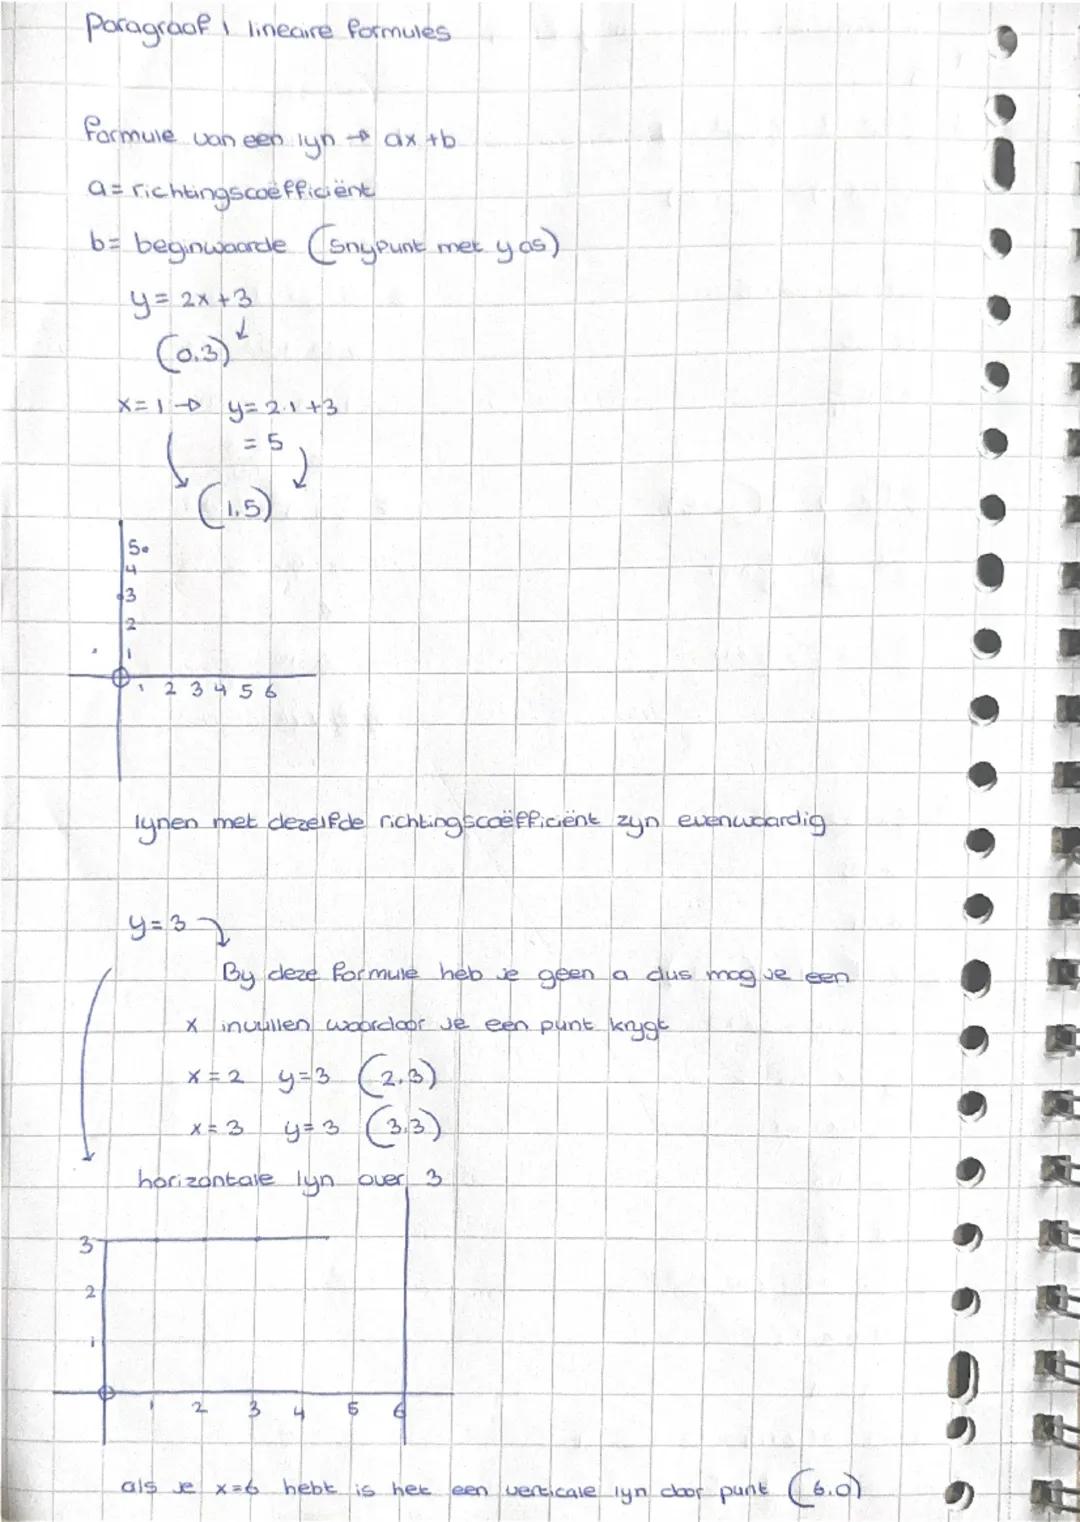 Paragraaf 1 lineaire formules
formule van een lyn → ax + b
a = richtingscoëfficiënt
b = beginwaarde (snypunt met y as)
y = 2x + 3
(0.3)
x = 1 → y = 2.1 + 3
= 5
(1.5)
5
4
3
2
1
1 2 3 4 5 6
lynen met dezelfde richtingscoëfficiënt zyn evenwaardig
y = 3
By deze formule heb je geen a dus mag je een
x invullen waardoor je een punt krygt
x = 2 y = 3 (2.3)
x = 3 y = 3 (3.3)
horizontale lyn over 3
3
2
1
1 2 3 4 5 6
als je x = 6 hebt is het een verticale lyn door punt (6.0)